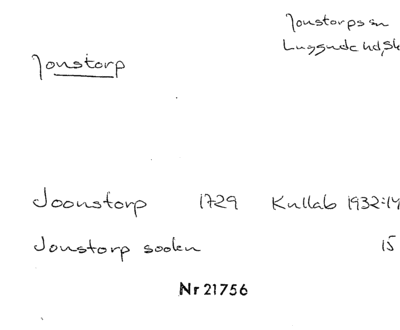 Jonstorps sn
Luggude hd, Sk
Jonstorp
Joonstorp 1729 Kullab 1932:14
Jonstorp socken 15
Nr 21756